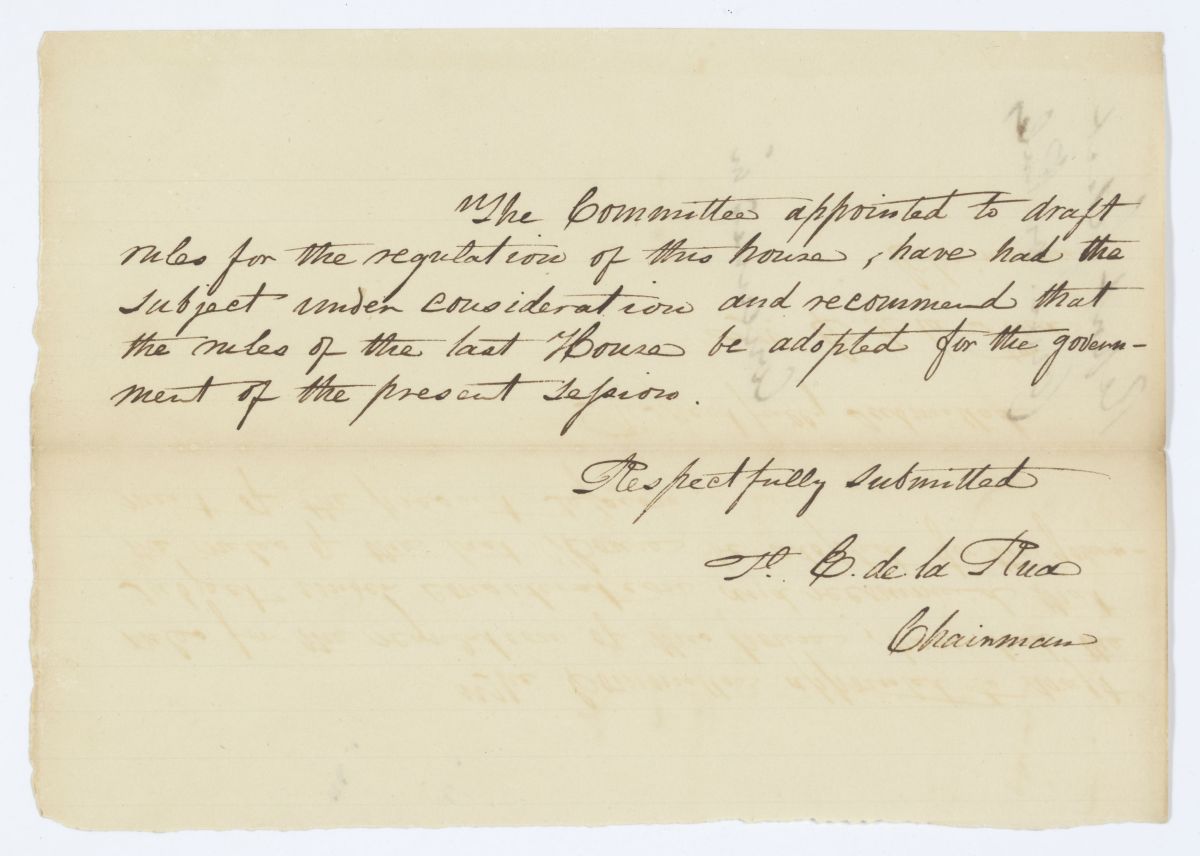 The Committee appointed to draft
rules for the regulation of this house, have had the
subject under consideration and recommend that
the rules of the last House be adopted for the govern-
ment of the present session.
Respectfully submitted
F. E. de la Rua
Chairman